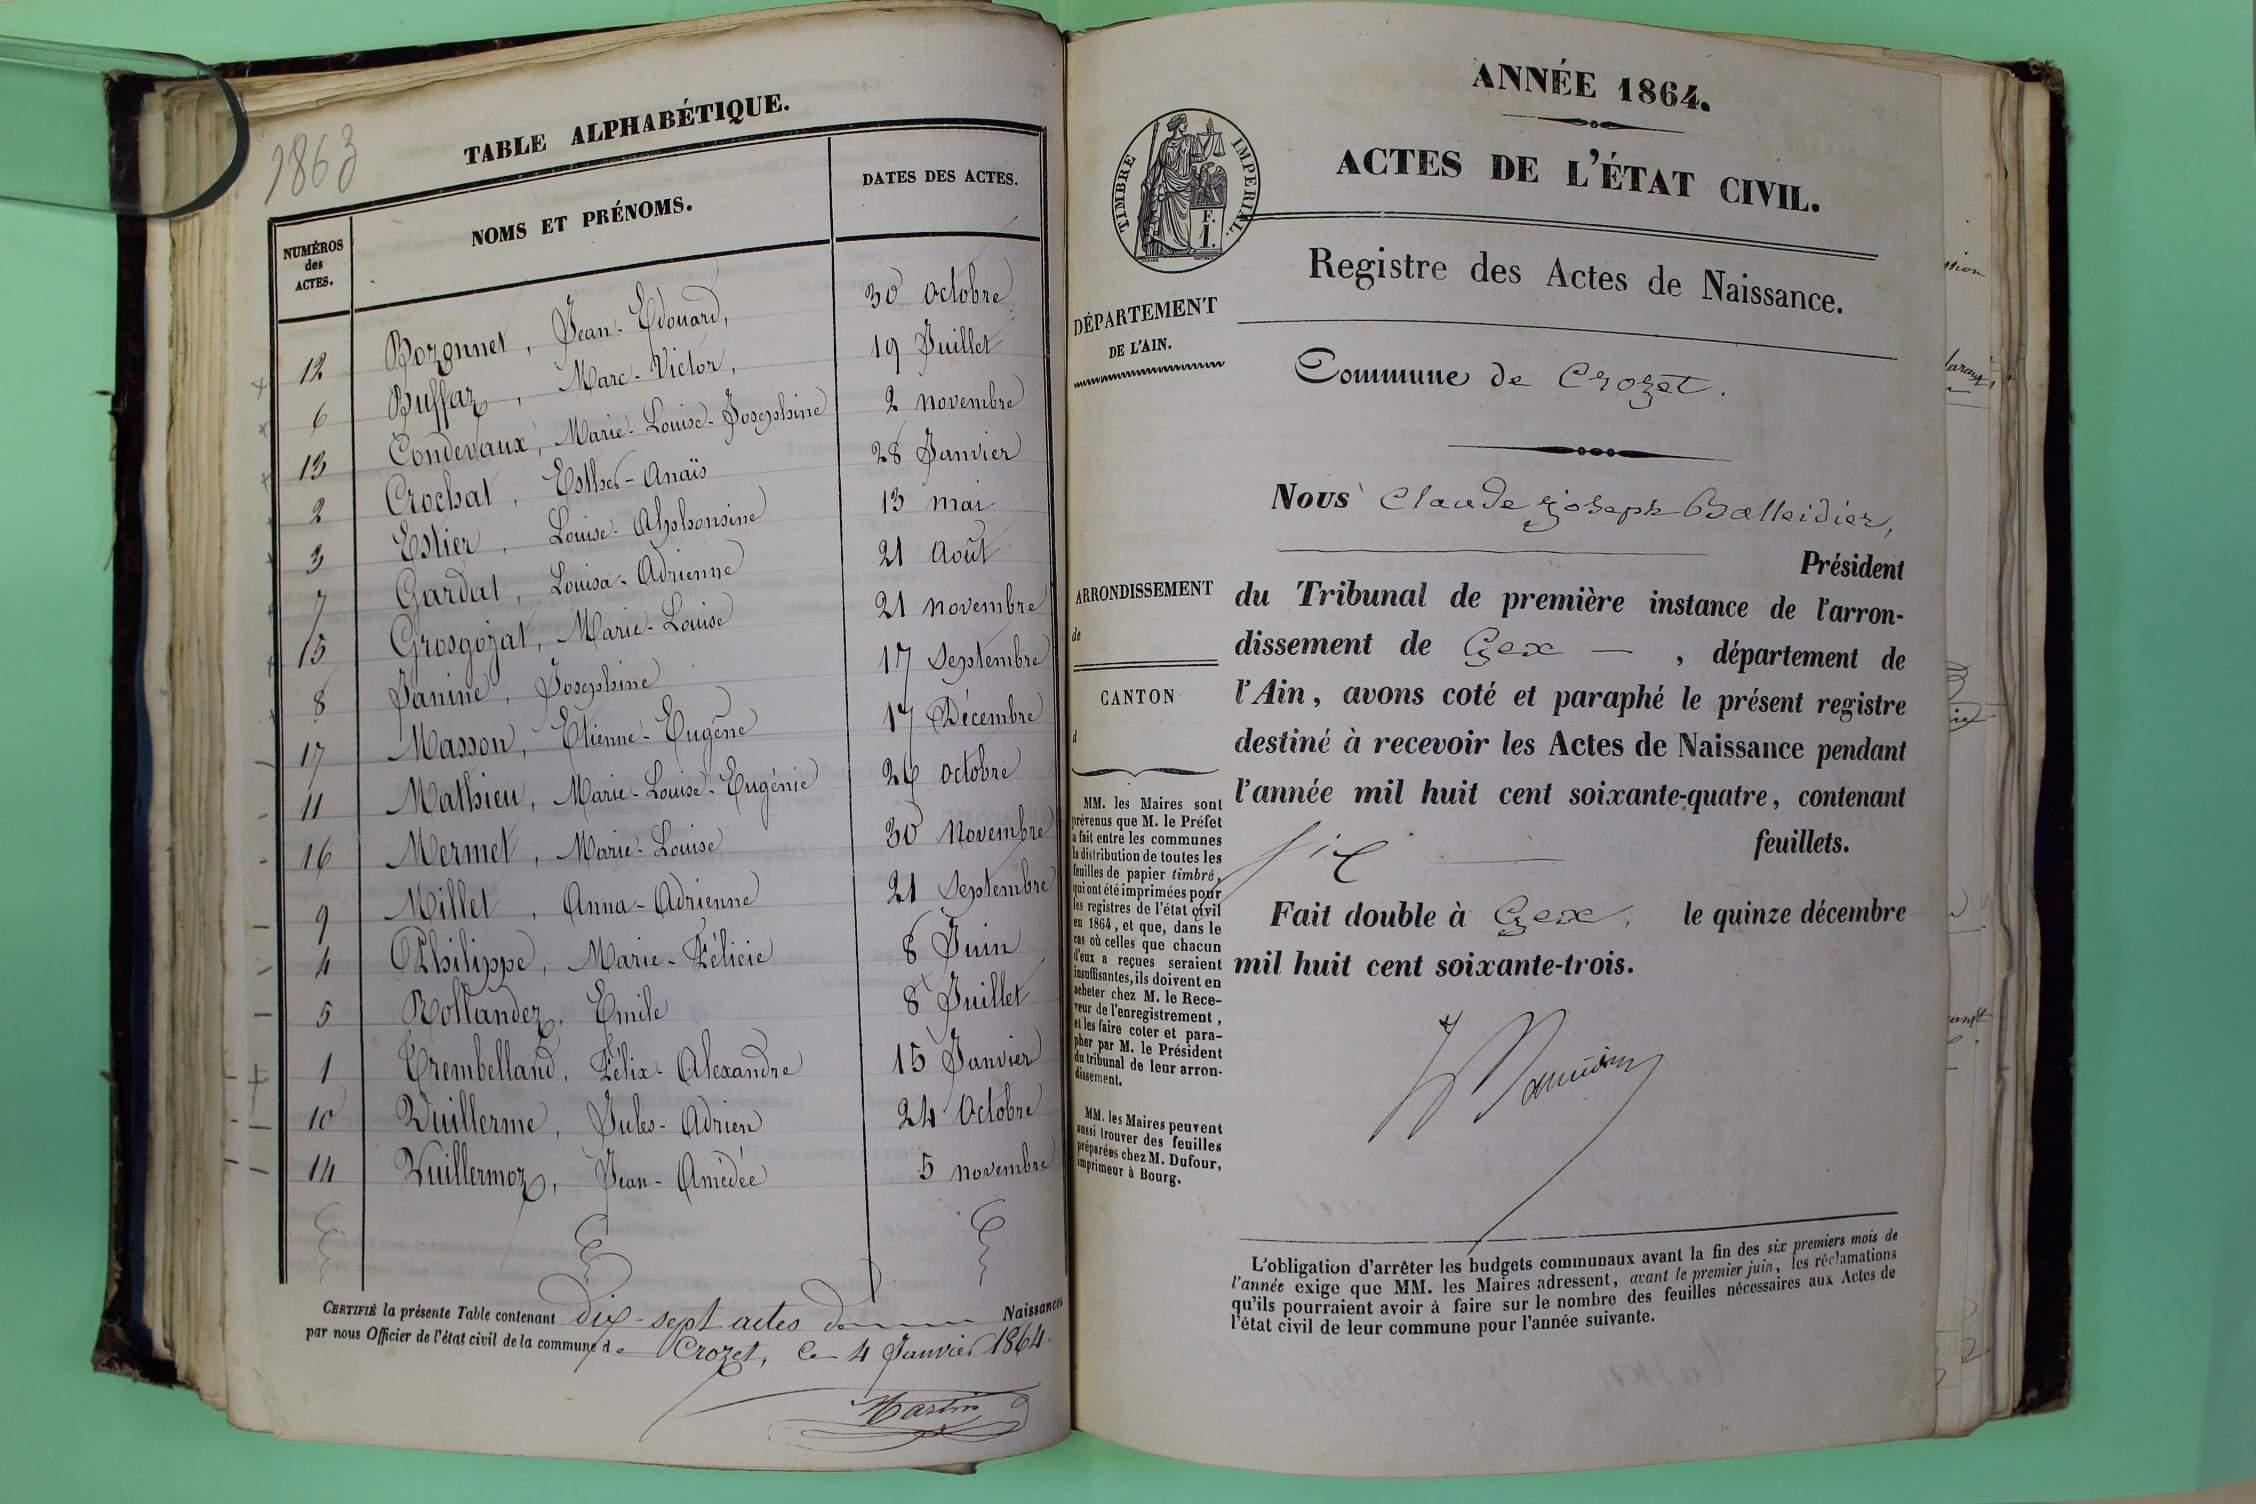 1863
TABLE ALPHABÉTIQUE.
NUMÉROS des ACTES. NOMS ET PRÉNOMS. DATES DES ACTES.
12 Bozonnet, Jean-Edouard, 30 octobre
6 Buffaz, Marc-Victor, 19 Juillet
13 Condevaux, Marie-Louise-Josephine 2 novembre
2 Crochat, Esther-Anaïs 28 Janvier
3 Estier, Louise-Alphonsine 13 mai
7 Gardat, Louisa-Adrienne 21 Août
15 Grosgojat, Marie-Louise 21 novembre
8 Janine, Josephine 17 Septembre
17 Masson, Etienne-Eugène 17 Décembre
11 Mathieu, Marie-Louise-Eugénie 26 octobre
16 Mermet, Marie-Louise 30 Novembre
9 Millet, Anna-Adrienne 21 Septembre
4 Philippe, Marie-Félicie 8 Juin
5 Rollandez, Emile 8 Juillet
1 Trembelland, Félix-Alexandre 15 Janvier
10 Vuillerme, Jules-Adrien 24 Octobre
14 Vuillermoz, Jean-Amédée 5 novembre
CERTIFIÉ la présente Table contenant dix-sept actes de Naissances
par nous Officier de l'état civil de la commune de Crozet, le 4 Janvier 1864.
Martin
ANNÉE 1864.
ACTES DE L'ÉTAT CIVIL.
TIMBRE IMPERIAL.
F.
1.
Registre des Actes de Naissance.
DÉPARTEMENT
DE L'AIN.
Commune de Crozet.
Nous Claude Joseph Balleidier,
Président
du Tribunal de première instance de l'arron-
dissement de Gex — , département de
l'Ain, avons coté et paraphé le présent registre
destiné à recevoir les Actes de Naissance pendant
l'année mil huit cent soixante-quatre, contenant
six feuillets.
Fait double à Gex, le quinze décembre
mil huit cent soixante-trois.
ARRONDISSEMENT
de
CANTON
d
MM. les Maires sont
prévenus que M. le Préfet
a fait entre les communes
la distribution de toutes les
feuilles de papier timbré,
qui ont été imprimées pour
les registres de l'état civil
en 1864, et que, dans le
cas où celles que chacun
d'eux a reçues seraient
insuffisantes, ils doivent en
acheter chez M. le Rece-
veur de l'enregistrement,
et les faire coter et para-
pher par M. le Président
du tribunal de leur arron-
dissement.
MM. les Maires peuvent
aussi trouver des feuilles
préparées chez M. Dufour,
imprimeur à Bourg.
L'obligation d'arrêter les budgets communaux avant la fin des six premiers mois de
l'année exige que MM. les Maires adressent, avant le premier juin, les réclamations
qu'ils pourraient avoir à faire sur le nombre des feuilles nécessaires aux Actes de
l'état civil de leur commune pour l'année suivante.